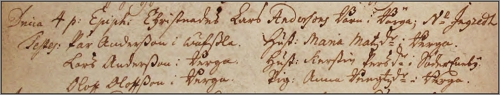 Dnica 4 p: Epiph: Christnades Lars Anderssons barn i Berga; N: Ingredh
Testes: Pär Andersson i Wäfsla. Hust: Maria Matzdr i Berga.
Lars Andersson i Berga. Hust: Kerstin Persdr i Söderby
Oloff Oloffsson i Berga. Pig: Anna Bengtzdr i Berga.